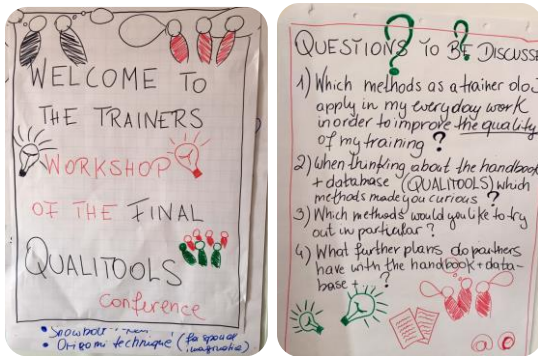 WELCOME TO
THE TRAINERS
WORKSHOP
OF THE FINAL
QUALITOOLS
conference
• Snowball
• Origami technique (
QUESTIONS TO BE DISCUSSE
1) Which methods as a trainer do I
apply in my everyday work
in order to improve the quality
of my training ?
2) When thinking about the handbook
+ database (QUALITOOLS) which
methods made you curious ?
3) Which methods would you like to try
out in particular ?
4) What further plans do partners
have with the handbook + data-
base + ?